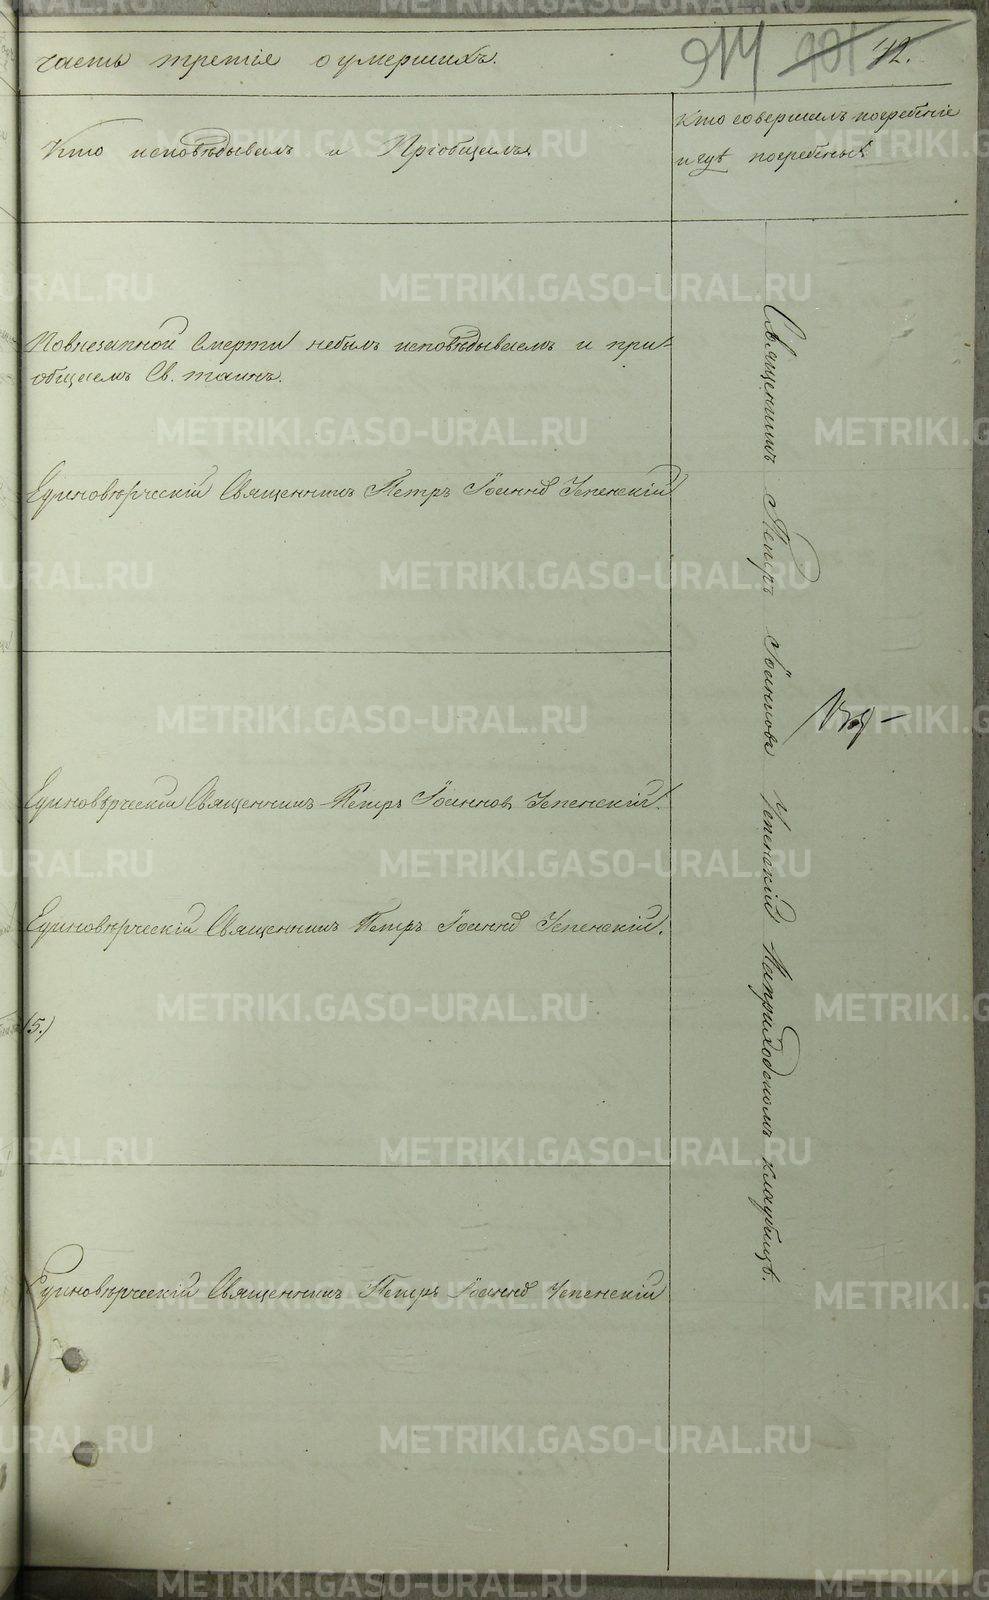 часть третiя о умершихъ.
914 101 42.
Кто исповѣдывалъ и Прiобщалъ
Кто совершалъ погребенiе
и гдѣ погребены
По внезапной Смерти небылъ исповѣдываемъ и прi-
общаемъ Св. таинъ.
Единовѣрческiй Священникъ Петръ Iоаннов Успенскiй
Единовѣрческiй Священникъ Петръ Iоаннов Успенскiй.
Единовѣрческiй Священникъ Петръ Iоаннов Успенскiй.
15.)
Единовѣрческiй Священникъ Петръ Iоаннов Успенскiй
Священникъ Петръ Iоанновъ Успенскiй На приходскомъ кладбищѣ.
METRIKI.GASO-URAL.RU